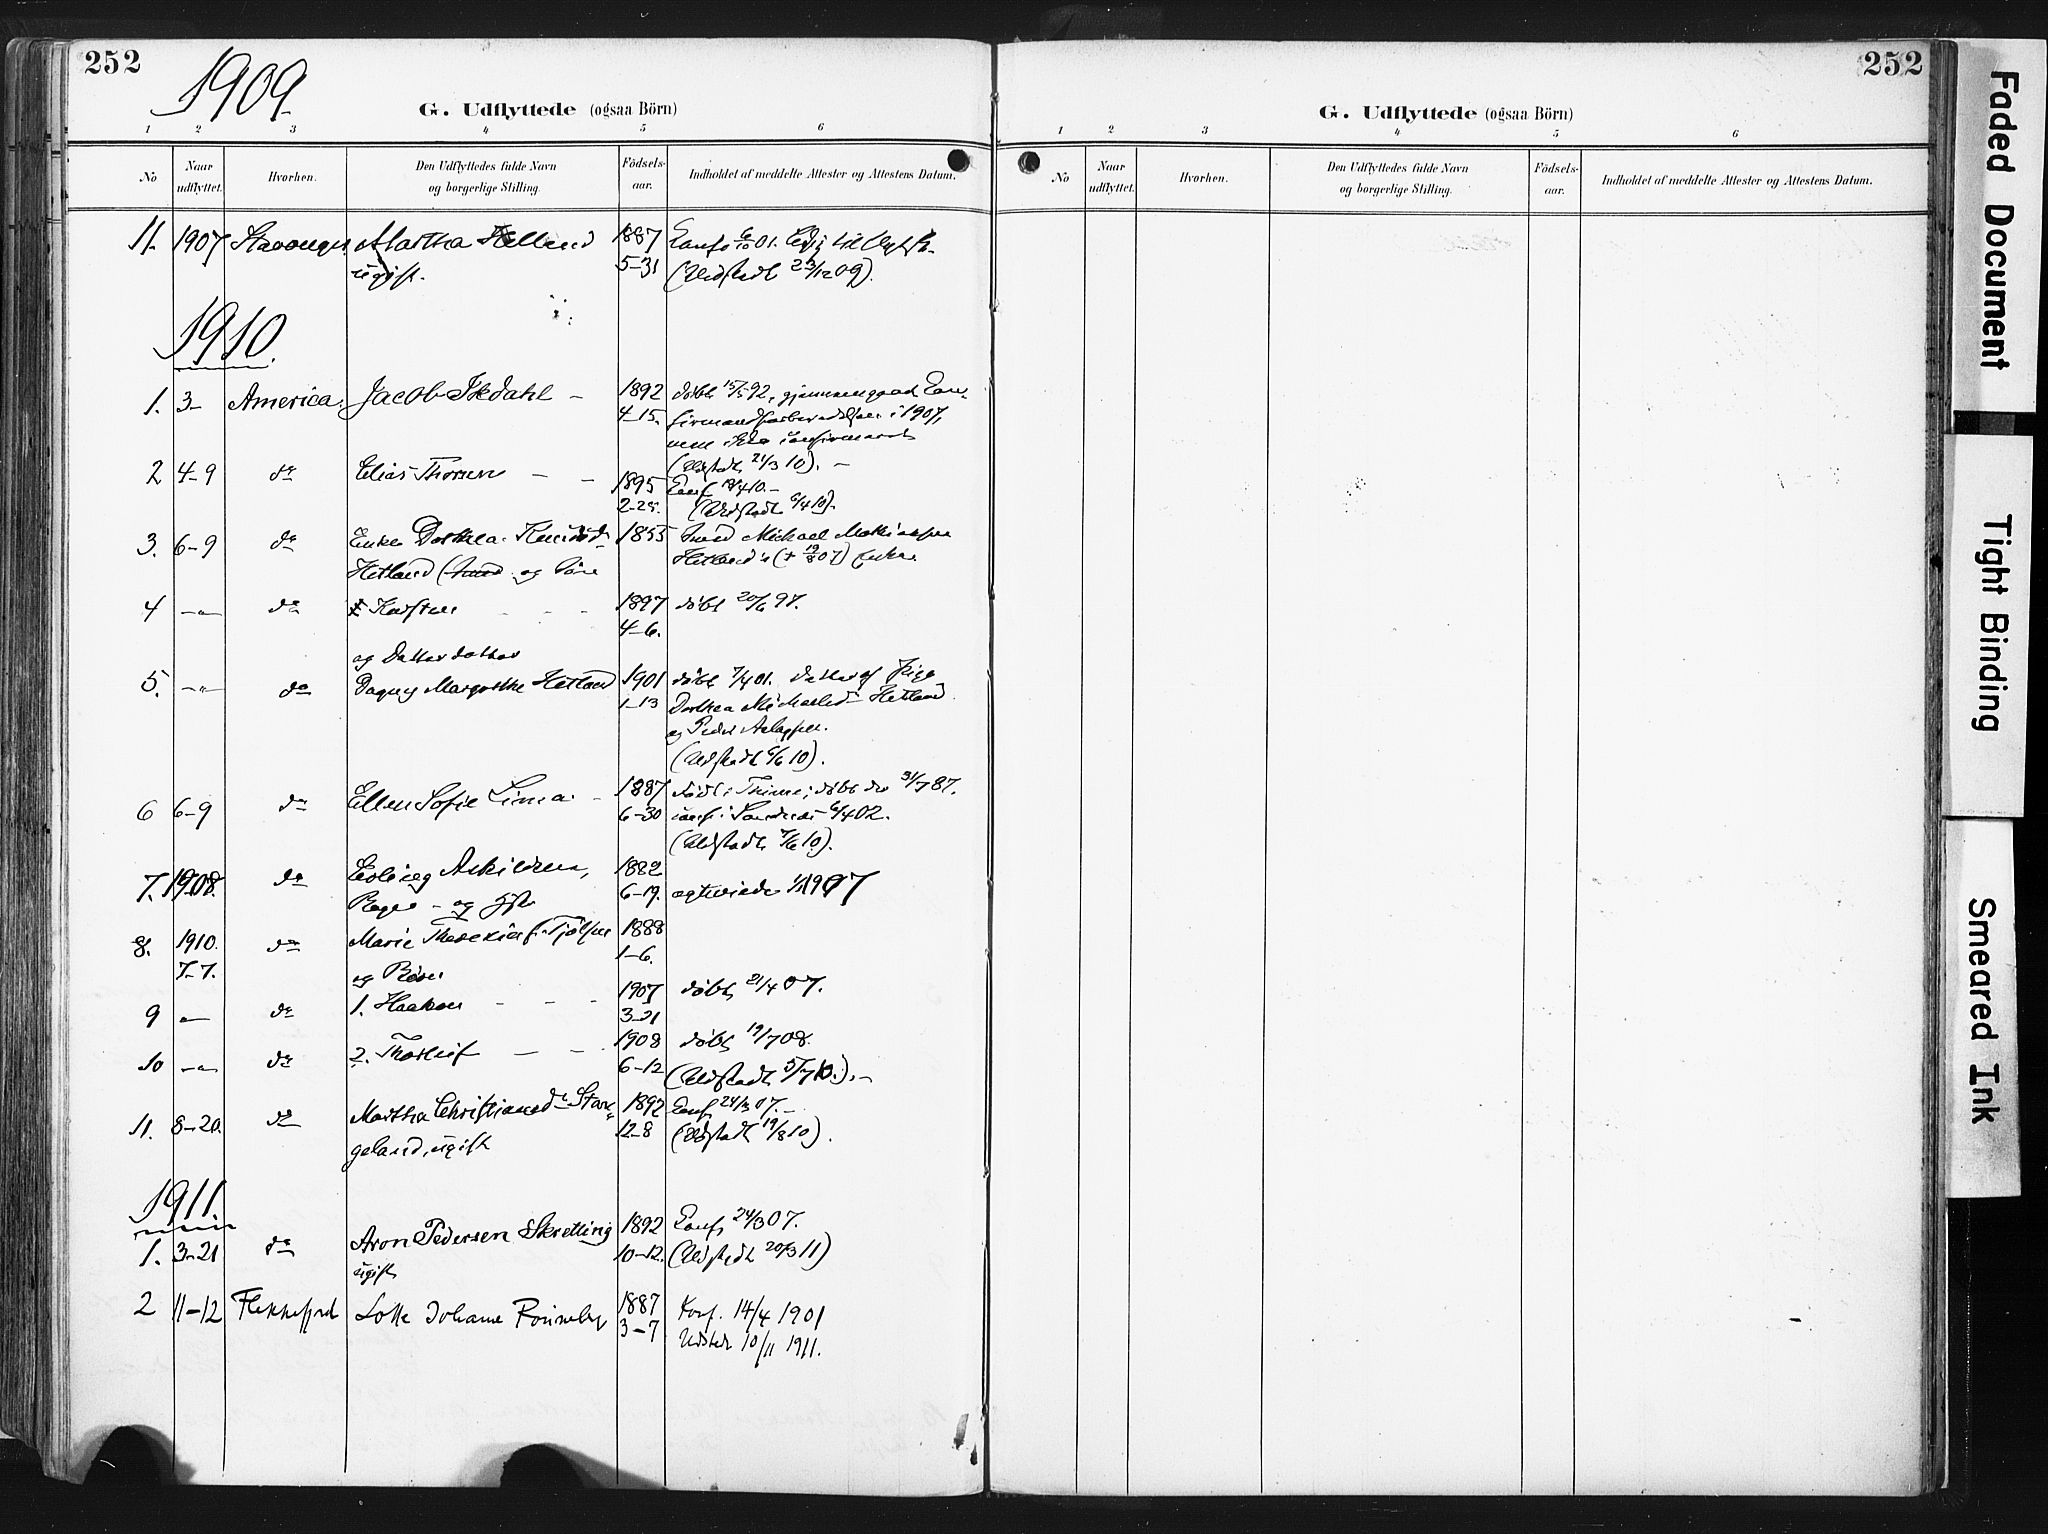 252
1909
G. Udflyttede (ogsaa Börn)
1 2 3 4 5 6
No
Naar udflyttet.
Hvorhen.
Den Udflyttedes fulde Navn og borgerlige Stilling.
Födselsaar.
Indholdet af meddelte Attester og Attestens Datum.
11. 1907 Stavanger Martha Helland 1887
ugift. 5-31 (Udstedt 23/12 09).
1910.
1. 3- America. Jacob Skdahl - 1892 døbt 15/5 92, gjennemgaaet Con-
4-15. firmandforberedelsen i 1907,
men ikke confirmeret
(Udstedt 21/3 10). -
2 4-9 do Elias Thorsen - - 1895 Conf. 10.-
2-25. (Udstedt 6/4 10).
3. 6-9 do Enke Dorthea 1855 Michael
Hetland og Søn Hetland's (+ 19/8 07) Enke.
4 -"- do Karsten - - - 1897 døbt 20/6 97.
4-6.
og Datterdatter
5. -"- do Dagny Margrethe Hetland 1901 døbt 7/4 01. Datter af Pige
1-13 Dorthea Hetland
og Peder
(Udstedt 6/6 10).
6 6-9 do Ellen Sofie Lima - 1887 født i Thime; døbt der 31/7 87.
6-30 conf. i Sandnes 6/4 02.
(Udstedt 7/6 10).
7. 1908. do Askildsen, 1882
og 6-19. 1907
8. 1910. do Marie f. Tjølsen 1888
7-7. og Børn 1-6.
9 -"- do 1. Haakon - - - 1907 døbt 21/4 07.
3-21
10 -"- do 2. Thorleif - - 1908 døbt 19/7 08.
6-12 (Udstedt 5/7 10.). -
11. 8-20. do Martha Christiansdr Stan- 1892 Conf. 24/3 07. -
geland, ugift 12-8 (Udstedt 19/8 10).
1911.
1. 3-21 do Aron Pedersen Skretting 1892 Conf. 24/3 07.
ugift 10-12. (Udstedt 20/3 11)
2 11-12 Flekkefjord Lotte Johanne Rønneby 1887 Konf. 14/4 1901
3-7 Udstedt 10/11 1911.
252
G. Udflyttede (ogsaa Börn)
1 2 3 4 5 6
No
Naar udflyttet.
Hvorhen.
Den Udflyttedes fulde Navn og borgerlige Stilling.
Födselsaar.
Indholdet af meddelte Attester og Attestens Datum.
Faded Document
Tight Binding
Smeared Ink